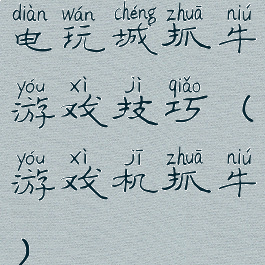 diàn wán chéng zhuā niú
电玩城抓牛
yóu xì jì qiǎo
游戏技巧（
yóu xì jī zhuā niú
游戏机抓牛
）